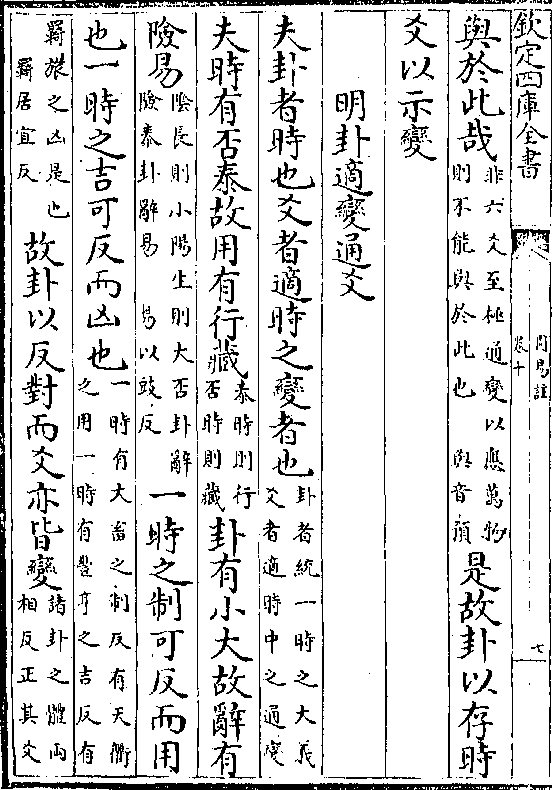 欽定四庫全書
周易註
卷十
七
與於此哉非六爻至極通變以應萬物則不能與於此也 與音預是故卦以存時
爻以示變
明卦適變通爻
夫卦者時也爻者適時之變者也卦者統一時之大義爻者適時中之通變
夫時有否泰故用有行藏泰時則行否時則藏卦有小大故辭有
險易陰長則小陽生則大否卦辭險泰卦辭易 易以豉反一時之制可反而用
也一時之吉可反而凶也一時有大畜之制反有天衢之用一時有豐亨之吉反有
羈旅之凶是也羈居宜反故卦以反對而爻亦皆變諸卦之體兩相反正其爻